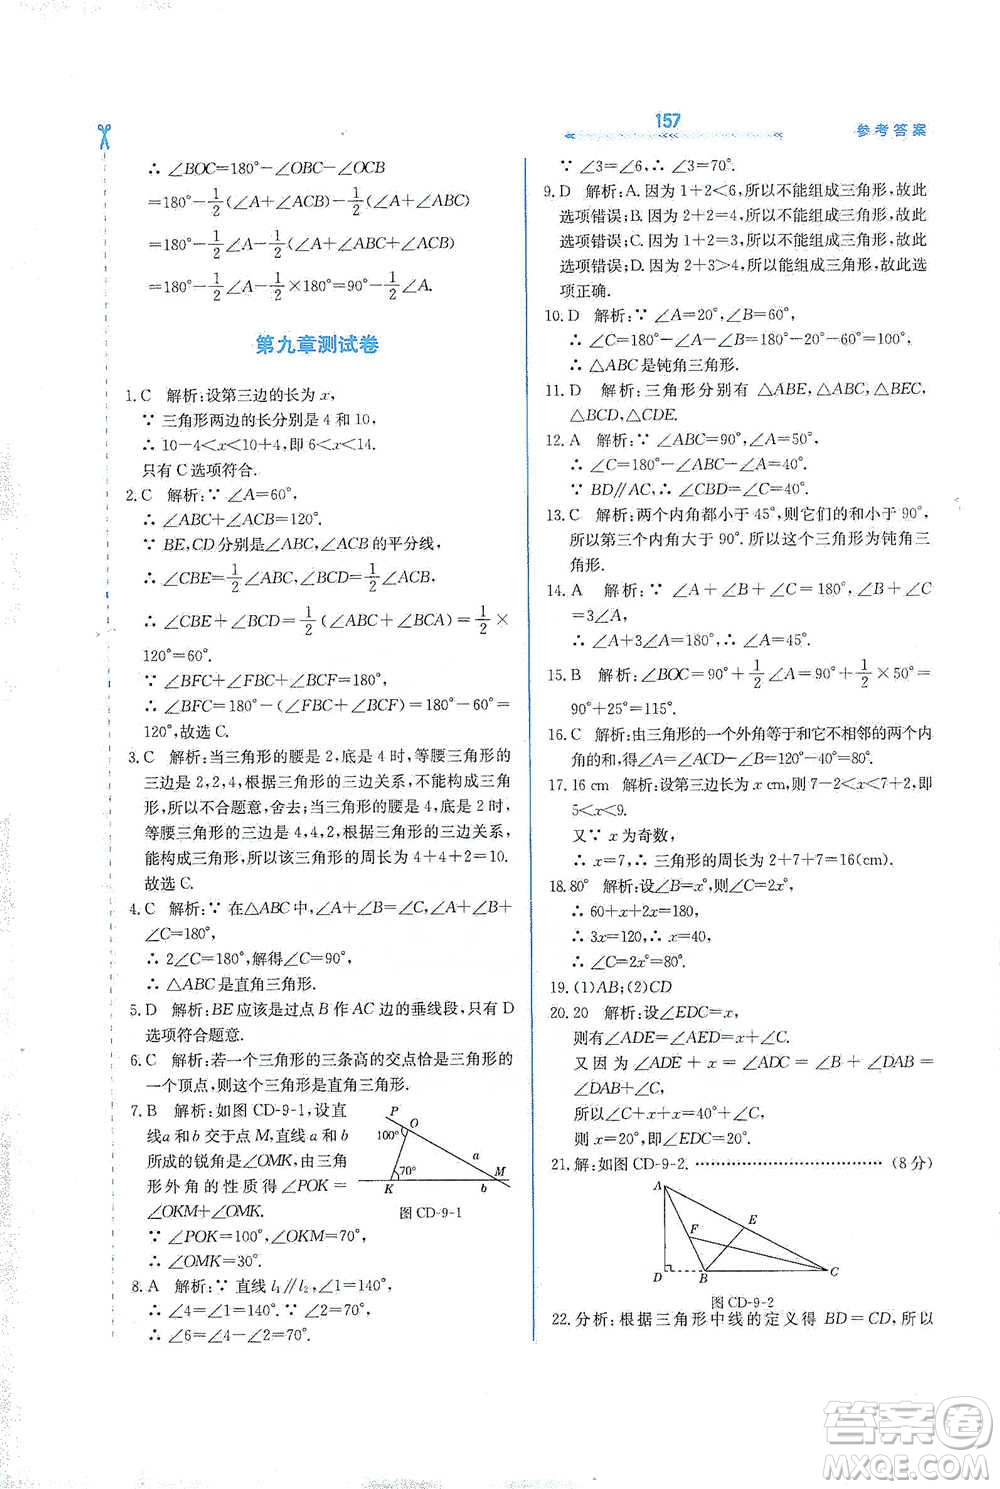 157
参考答案
∴ ∠BOC=180°-∠OBC-∠OCB
=180°-1/2(∠A+∠ABC)-1/2(∠A+∠ACB)
=180°-1/2∠A-1/2(∠A+∠ABC+∠ACB)
=180°-1/2∠A-1/2×180°=90°-1/2∠A.
第九章测试卷
1. C 解析:设第三边的长为 x,
∵ 三角形两边的长分别是 4 和 10,
∴ 10-4<x<10+4,即 6<x<14.
只有 C 选项符合.
2. C 解析:∵ ∠A=60°,
∴ ∠ABC+∠ACB=120°.
∵ BE,CD 分别是∠ABC,∠ACB 的平分线,
∴ ∠CBE=1/2∠ABC,∠BCD=1/2∠ACB,
∴ ∠CBE+∠BCD=1/2(∠ABC+∠ACB)=1/2×
120°=60°.
∵ ∠BFC+∠CBF+∠BCF=180°,
∴ ∠BFC=180°-(∠FBC+∠BCF)=180°-60°=
120°,故选 C.
3. C 解析:当三角形的腰是 2,底是 4 时,等腰三角形的
三边是 2,2,4,根据三角形的三边关系,不能构成三角
形,所以不合题意,舍去;当三角形的腰是 4,底是 2 时,
等腰三角形的三边是 4,4,2,根据三角形的三边关系,
能构成三角形,所以该三角形的周长为 4+4+2=10.
故选 C.
4. C 解析:∵ 在△ABC 中,∠A+∠B=∠C,∠A+∠B+
∠C=180°,
∴ 2∠C=180°,解得∠C=90°.
∴ △ABC 是直角三角形.
5. D 解析:BE 应该是过点 B 作 AC 边的垂线段,只有 D
选项符合题意.
6. C 解析:若一个三角形的三条高的交点恰是三角形的
一个顶点,则这个三角形是直角三角形.
7. B 解析:如图 CD-9-1,设直
线 a 和 b 交于点 M,直线 a 和 b
所成的锐角是∠OMK,由三角
形外角的性质得∠POK=
∠OKM+∠OMK.
∵ ∠POK=100°,∠OKM=70°,
∴ ∠OMK=30°.
P
O
100°
a
70°
M
K
b
图 CD-9-1
8. A 解析:∵ 直线 l₁∥l₂,∠1=140°,
∴ ∠4=∠1=140°,∵ ∠2=70°,
∴ ∠6=∠4-∠2=140°-70°=70°.
∵ ∠3=∠6,∴ ∠3=70°.
9. D 解析:A. 因为 1+2<6,所以不能组成三角形,故此
选项错误;B. 因为 2+2=4,所以不能组成三角形,故此
选项错误;C. 因为 1+2=3,所以不能组成三角形,故此
选项错误;D. 因为 2+3>4,所以能组成三角形,故此选
项正确.
10. D 解析:∵ ∠A=20°,∠B=60°,
∴ ∠C=180°-∠A-∠B=100°,
∴ △ABC 是钝角三角形.
11. D 解析:三角形分别有 △ABE,△ABC,△BEC,
△BCD,△CDE.
12. A 解析:∵ ∠ABC=90°,∠A=50°,
∴ ∠C=90°-∠A=40°.
∵ BD∥AC,∴ ∠CBD=∠C=40°.
13. C 解析:两个内角都小于 45°,则它们的和小于 90°,
所以第三个内角大于 90°. 所以这个三角形为钝角三
角形.
14. A 解析:∵ ∠A+∠B+∠C=180°,∠B+∠C
=3∠A,
∴ ∠A+3∠A=180°,∴ ∠A=45°.
15. B 解析:∠BOC=90°+1/2∠A=90°+1/2×50°=
90°+25°=115°.
16. C 解析:由三角形的一个外角等于和它不相邻的两个内
角的和,得∠C=∠ACD-∠B=120°-40°=80°.
17. 16 cm 解析:设第三边长为 x cm,则 7-2<x<7+2,即
5<x<9.
又∵ x 为奇数,
∴ x=7,∴ 三角形的周长为 2+7+7=16(cm).
18. 80° 解析:设∠B=x°,则∠C=2x°,
∴ 60+x+2x=180,
∴ 3x=120,∴ x=40.
∴ ∠C=2x°=80°.
19. (1)AB;(2)CD
20. 20 解析:设∠EDC=x,
则有∠ADE=∠AED=x+∠C.
又因为∠ADE+x=∠ADC=∠B+∠DAB=
∠C+∠DAB,
所以∠C+2x=40°+∠C.
所以 x=20°,即∠EDC=20°.
21. 解:如图 CD-9-2. ……………………………(8 分)
A
E
F
D
B
C
图 CD-9-2
22. 分析:根据三角形中线的定义得 BD=CD,所以
答案圈
MXQE.COM